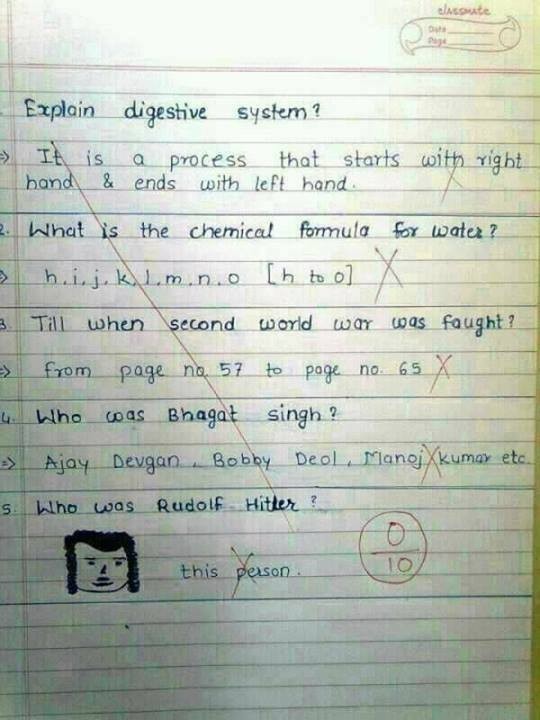 classmate
Date
Page
Explain digestive system?
=> It is a process that starts with right
hand & ends with left hand.
2. What is the chemical formula for water?
=> h, i, j, k, l, m, n, o [h to o] X
3. Till when second world war was faught?
=> from page no. 57 to page no. 65 X
4. Who was Bhagat singh?
=> Ajay Devgan, Bobby Deol, Manoj kumar etc.
5. Who was Rudolf Hitler?
this person.
0
10